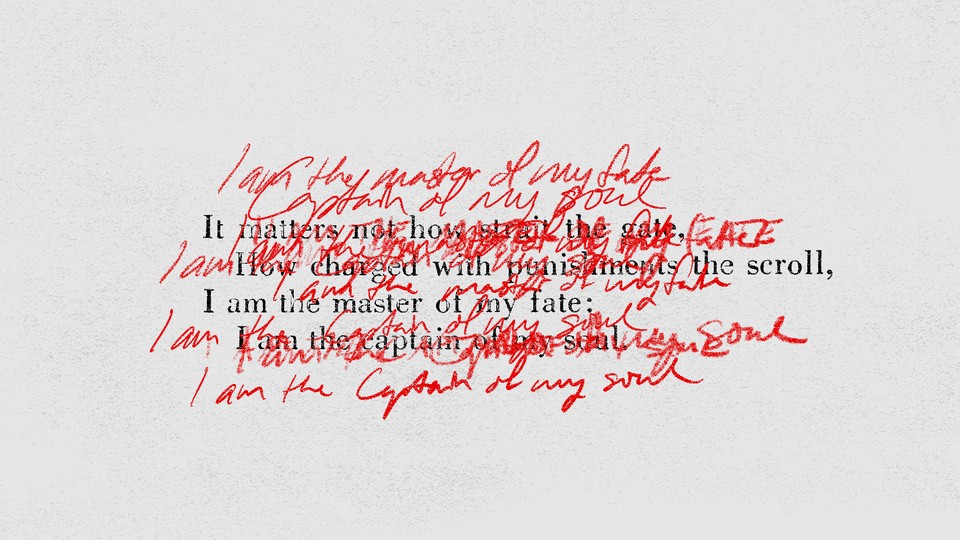 I am the master of my fate
Captain of my Soul
It matters not how strait the gate,
FATE
I am
How charged with punishments the scroll,
I am the master of my fate
I am the master of my fate:
I am the Captain of my soul
I am the captain of my soul.
my Soul
I am the Captain of my soul